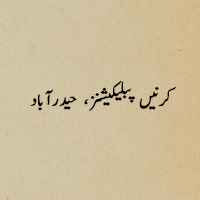 کرنیں پبلیکیشنز، حیدرآباد